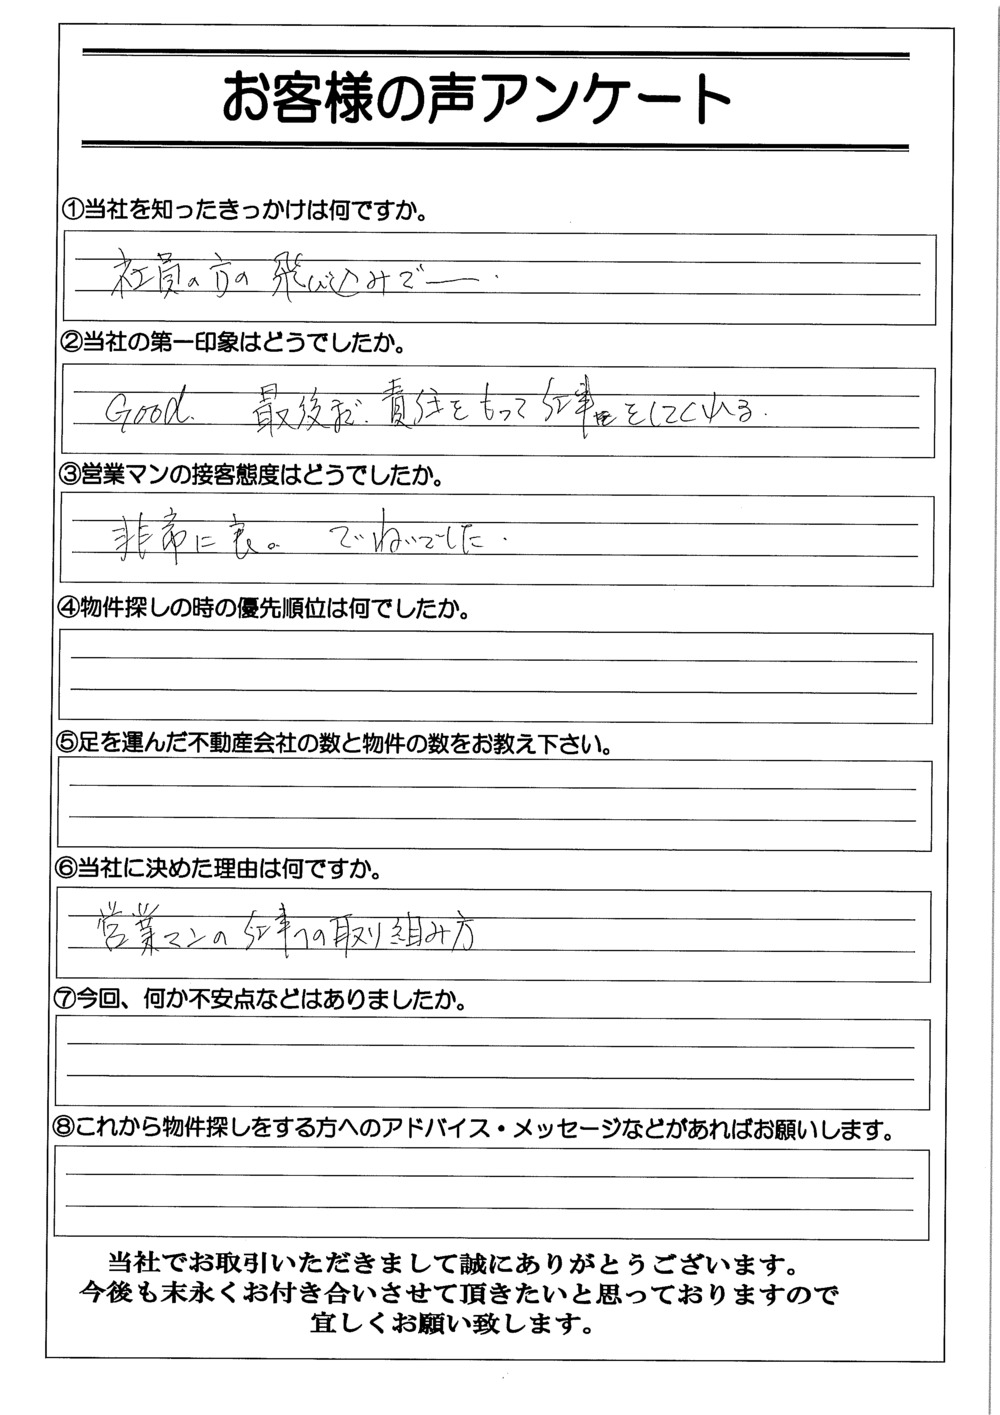 お客様の声アンケート
①当社を知ったきっかけは何ですか。
社員の方の飛び込みで──.
②当社の第一印象はどうでしたか。
Good. 最後まで、責任をもって仕事をしてくれる.
③営業マンの接客態度はどうでしたか。
非常に良。 でいねいでした.
④物件探しの時の優先順位は何でしたか。
⑤足を運んだ不動産会社の数と物件の数をお教え下さい。
⑥当社に決めた理由は何ですか。
営業マンの仕事への取り組み方
⑦今回、何か不安点などはありましたか。
⑧これから物件探しをする方へのアドバイス・メッセージなどがあればお願いします。
当社でお取引いただきまして誠にありがとうございます。
今後も末永くお付き合いさせて頂きたいと思っておりますので
宜しくお願い致します。